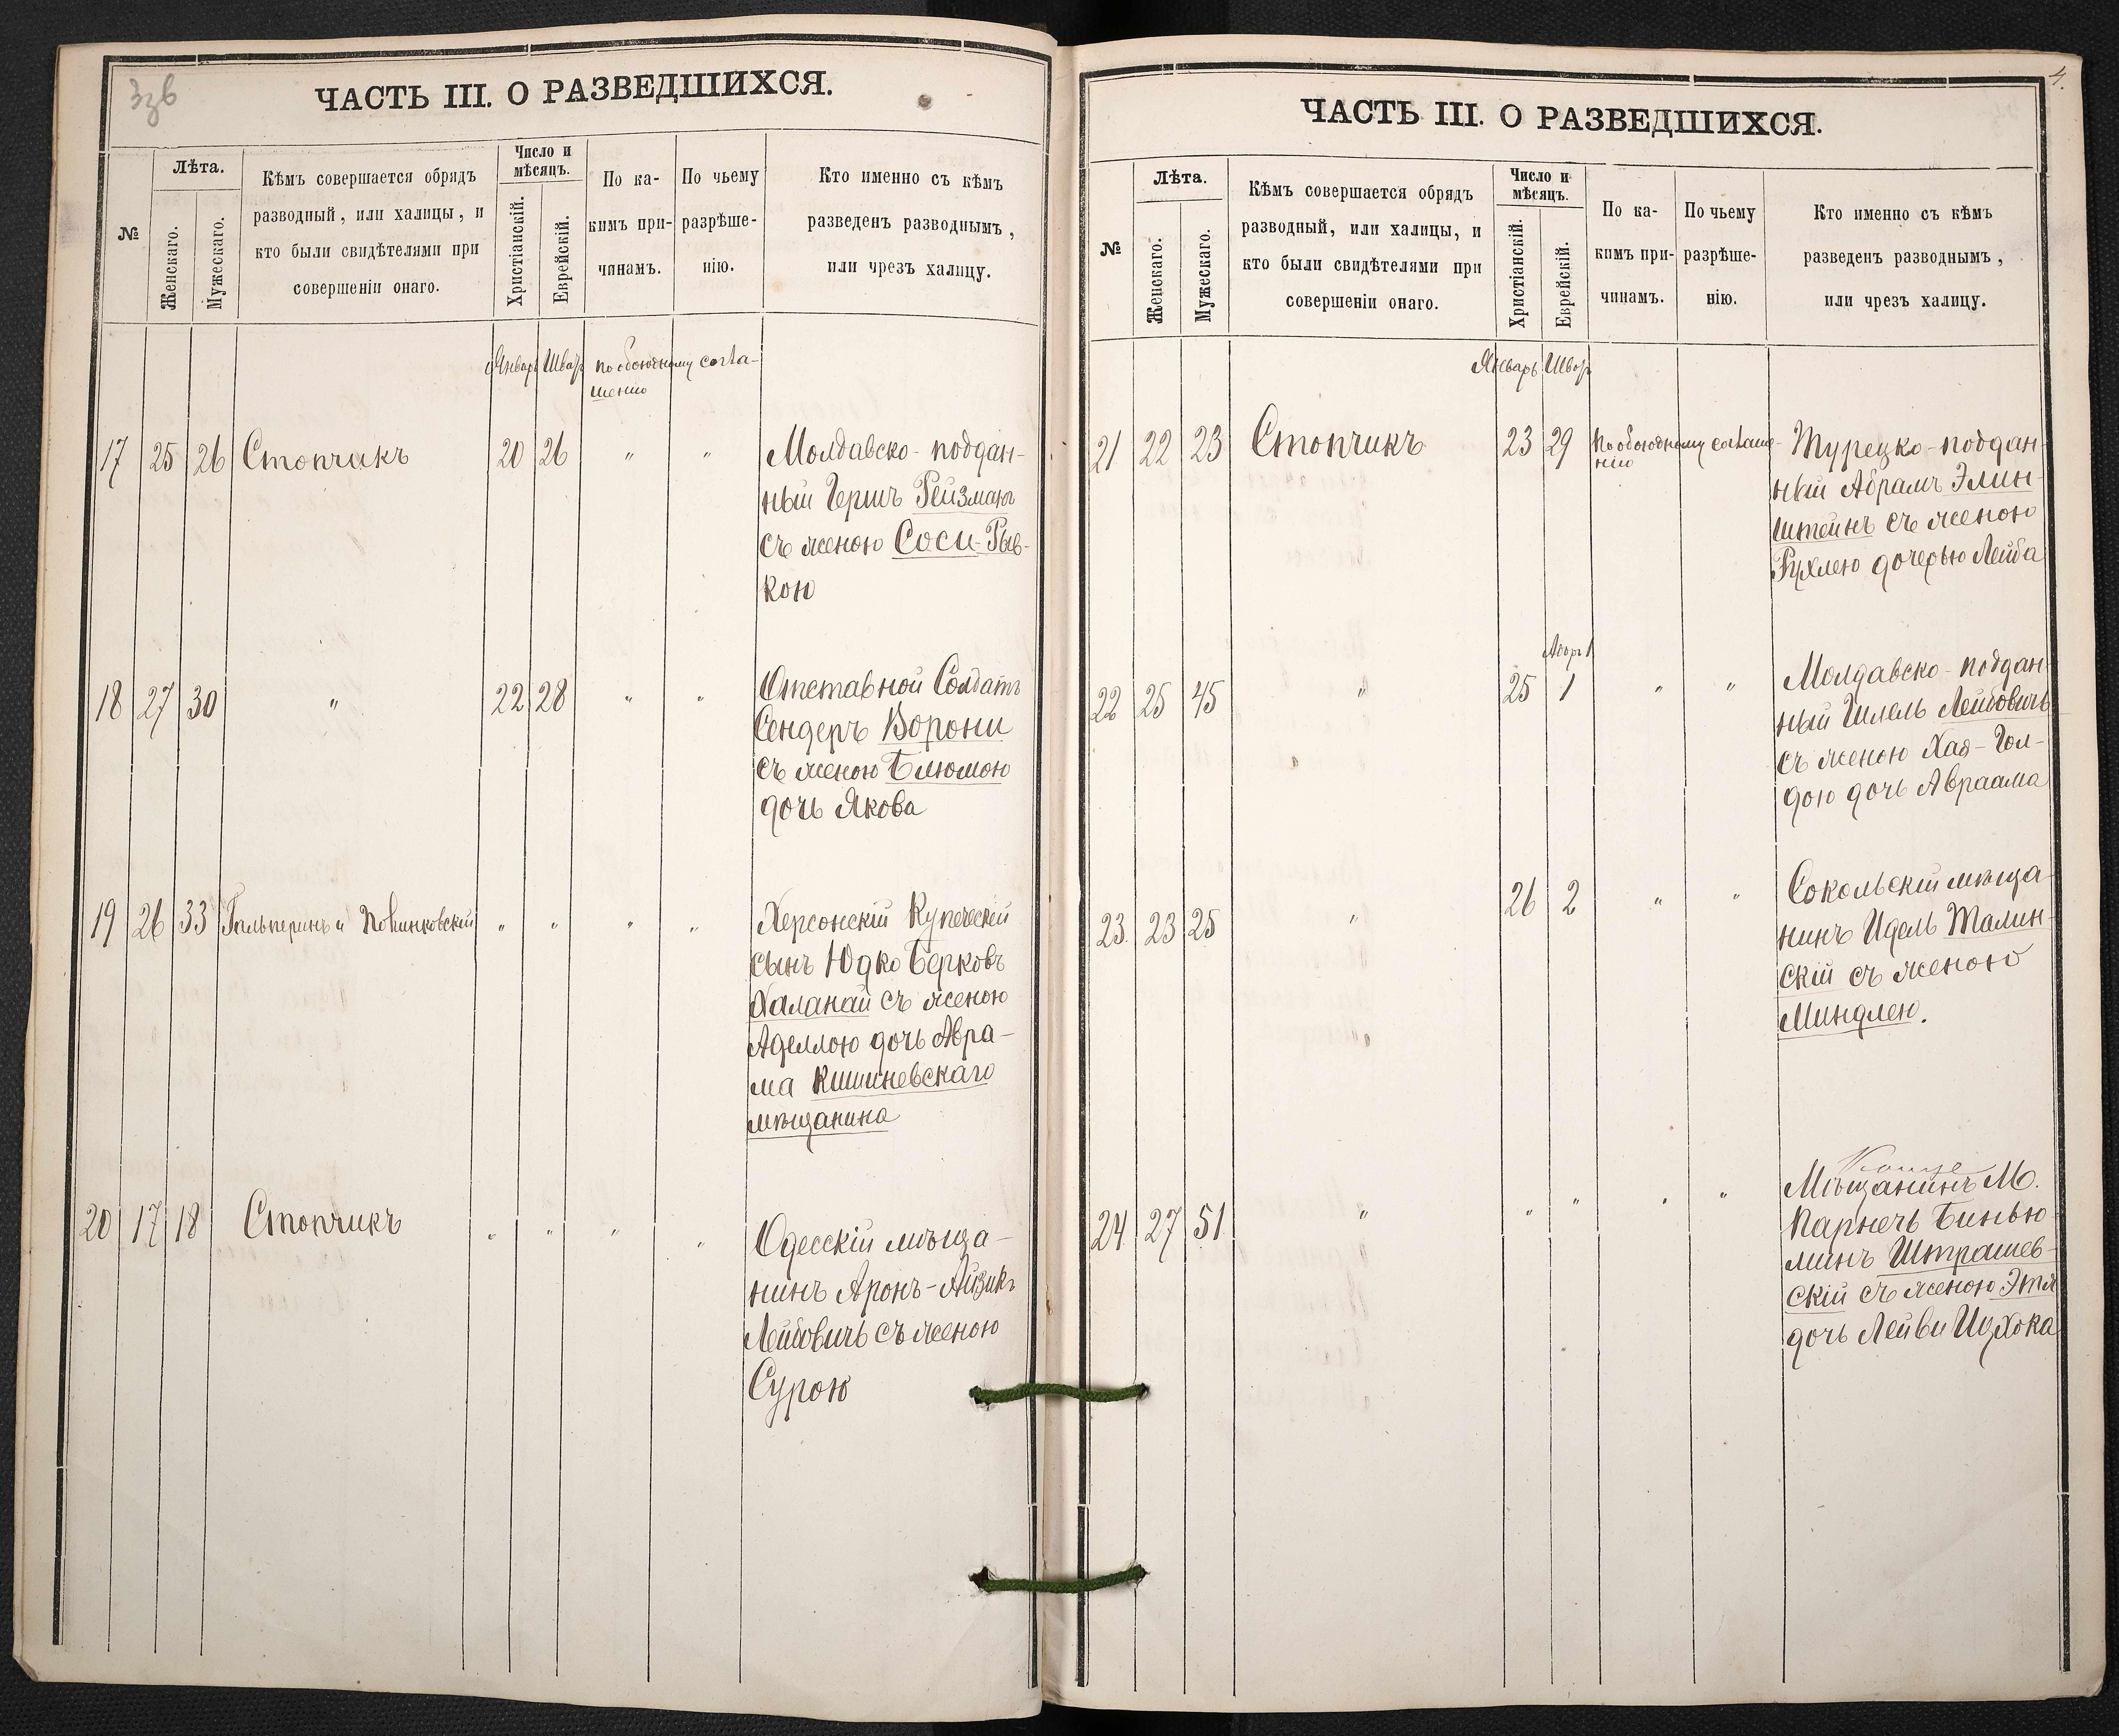 ззв
ЧАСТЬ III. О РАЗВЕДШИХСЯ.
№
Лѣта.
Женскаго.
Мужескаго.
Кѣмъ совершается обрядъ
разводный, или халицы, и
кто были свидѣтелями при
совершеніи онаго.
Число и
мѣсяцъ.
Христіанскій.
Еврейскій.
По ка-
кимъ при-
чинамъ.
По чьему
разрѣше-
нію.
Кто именно съ кѣмъ
разведенъ разводнымъ,
или чрезъ халицу.
Январь Шватъ по обоюдному согла-
шенію
17 25 26 Стопчикъ 20 26 " " Молдавско-поддан-
ный Гершъ Рейзманъ
съ женою Соси-Рыв-
кою
18 27 30 " 22 28 " " Отставной Солдатъ
Сендеръ Ворони
съ женою Блюмою
дочь Якова
19 26 33 Гальперинъ и " " " " Херсонскій Купеческій
сынъ Юдко Берковъ
Халанай съ женою
Аделлою дочь Авра-
ма Кишиневскаго
мѣщанина
20 17 18 Стопчикъ " " " " Одесскій мѣща-
нинъ Аронъ-Айзикъ
Лейбовичъ съ женою
Сурою
4.
ЧАСТЬ III. О РАЗВЕДШИХСЯ.
№
Лѣта.
Женскаго.
Мужескаго.
Кѣмъ совершается обрядъ
разводный, или халицы, и
кто были свидѣтелями при
совершеніи онаго.
Число и
мѣсяцъ.
Христіанскій.
Еврейскій.
По ка-
кимъ при-
чинамъ.
По чьему
разрѣше-
нію.
Кто именно съ кѣмъ
разведенъ разводнымъ,
или чрезъ халицу.
Январь Шватъ
21 22 23 Стопчикъ 23 29 по обоюдному соглаше-
нію
Турецко-поддан-
ный Абрамъ Элин-
штейнъ съ женою
Рухлею дочерью Лейба
22 25 45 " 25 1 " " Молдавско-поддан-
ный Гилель Лейбовичъ
съ женою Хая-Гол-
дою дочь Авраама
23. 23 25 " 26 2 " " Сокольскій мѣща-
нинъ Идель Талин-
скій съ женою
Миндлею.
24 27 51 " " " " " Мѣщанинъ М.
Парнечь Биньо-
минъ Штрашев-
скій съ женою Этл
дочь Лейви Ицхока